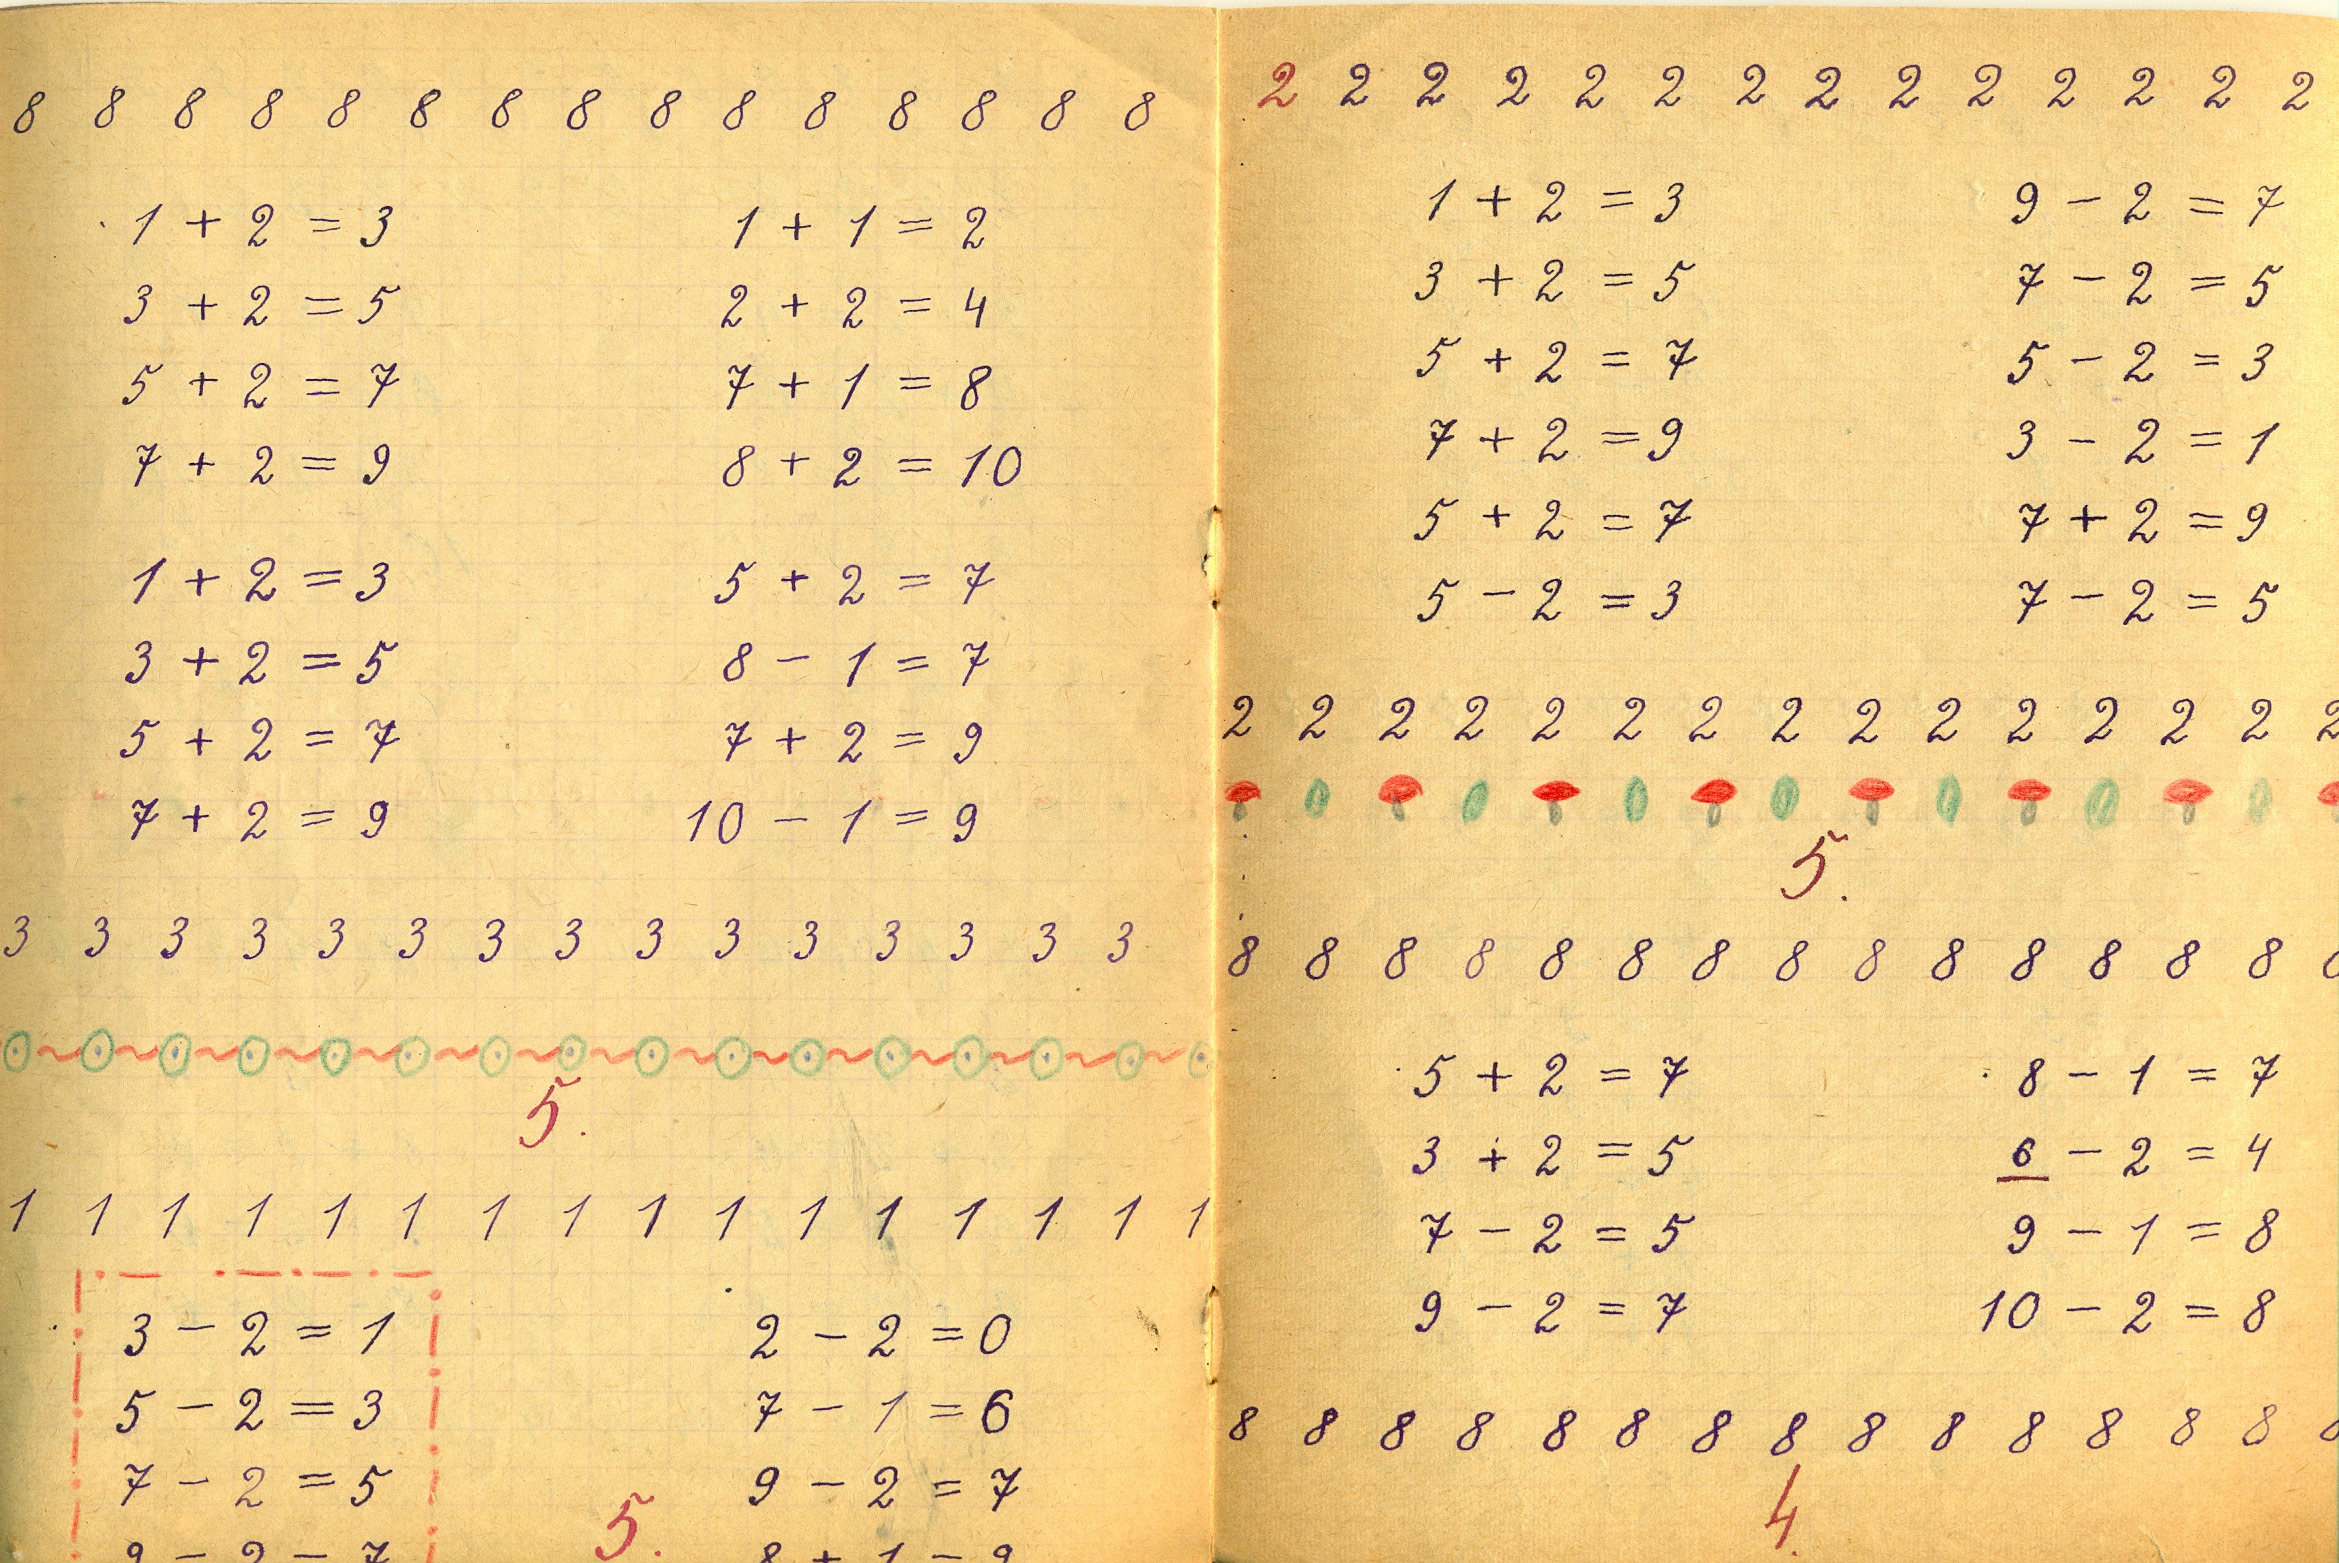 8 8 8 8 8 8 8 8 8 8 8 8 8 8 8
1 + 2 = 3 1 + 1 = 2
3 + 2 = 5 2 + 2 = 4
5 + 2 = 7 7 + 1 = 8
7 + 2 = 9 8 + 2 = 10
1 + 2 = 3 5 + 2 = 7
3 + 2 = 5 8 - 1 = 7
5 + 2 = 7 7 + 2 = 9
7 + 2 = 9 10 - 1 = 9
3 3 3 3 3 3 3 3 3 3 3 3 3 3 3
5.
1 1 1 1 1 1 1 1 1 1 1 1 1 1 1 1
3 - 2 = 1 2 - 2 = 0
5 - 2 = 3 7 - 1 = 6
7 - 2 = 5 9 - 2 = 7
5.
9 - 2 = 7 8 + 1 = 9
2 2 2 2 2 2 2 2 2 2 2 2 2 2
1 + 2 = 3 9 - 2 = 7
3 + 2 = 5 7 - 2 = 5
5 + 2 = 7 5 - 2 = 3
7 + 2 = 9 3 - 2 = 1
5 + 2 = 7 7 + 2 = 9
5 - 2 = 3 7 - 2 = 5
2 2 2 2 2 2 2 2 2 2 2 2 2 2 2
5.
8 8 8 8 8 8 8 8 8 8 8 8 8 8 8
5 + 2 = 7 8 - 1 = 7
3 + 2 = 5 6 - 2 = 4
7 - 2 = 5 9 - 1 = 8
9 - 2 = 7 10 - 2 = 8
8 8 8 8 8 8 8 8 8 8 8 8 8 8 8
4.